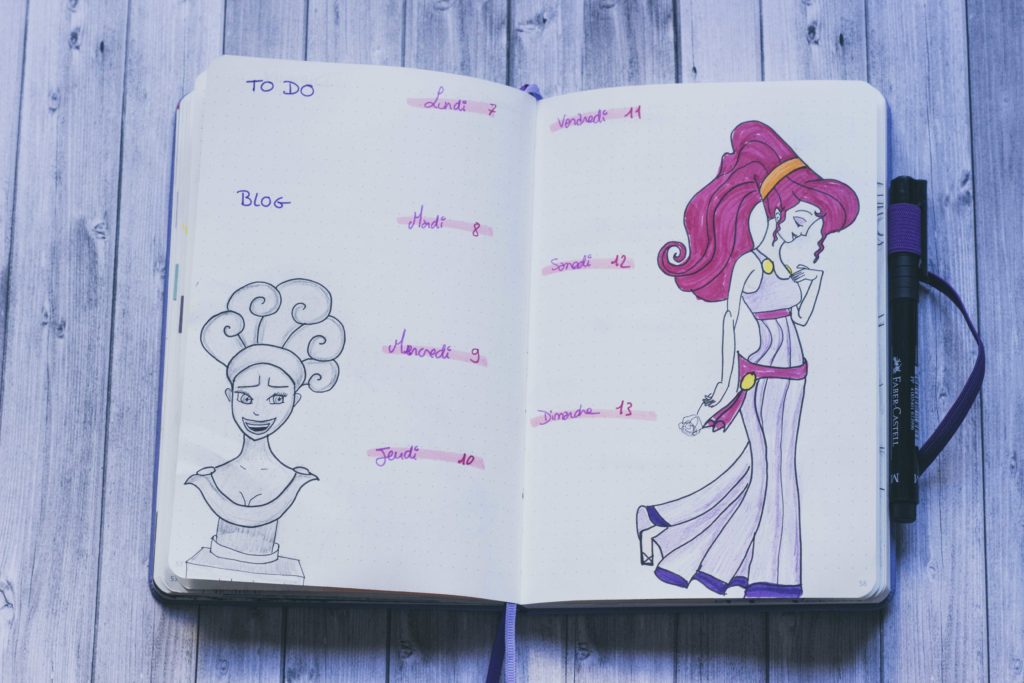 TO DO
BLOG
Lundi 7
Mardi 8
Mercredi 9
Jeudi 10
Vendredi 11
Samedi 12
Dimanche 13
FABER-CASTELL